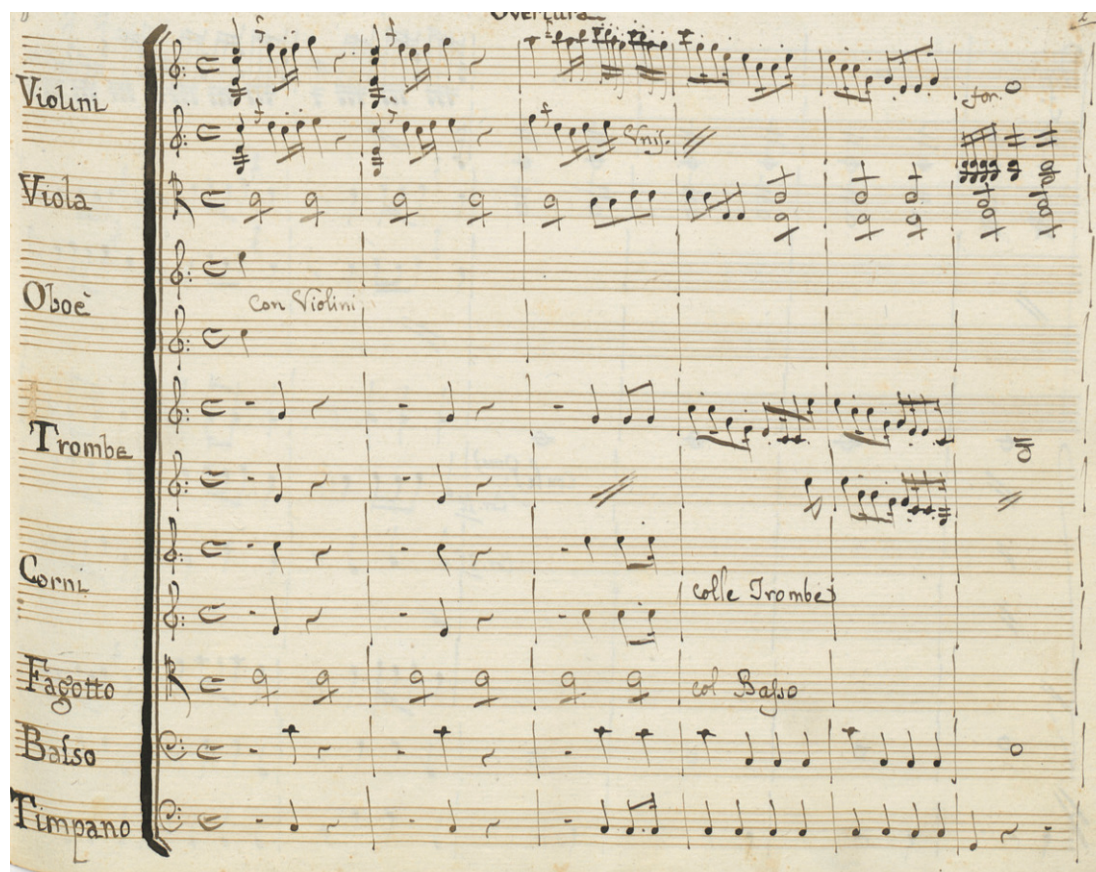 Overtura
Violini
for.
Unis.
Viola
Oboè
con Violini
Trombe
Corni
colle Trombe
Fagotto
col Basso
Basso
Timpano